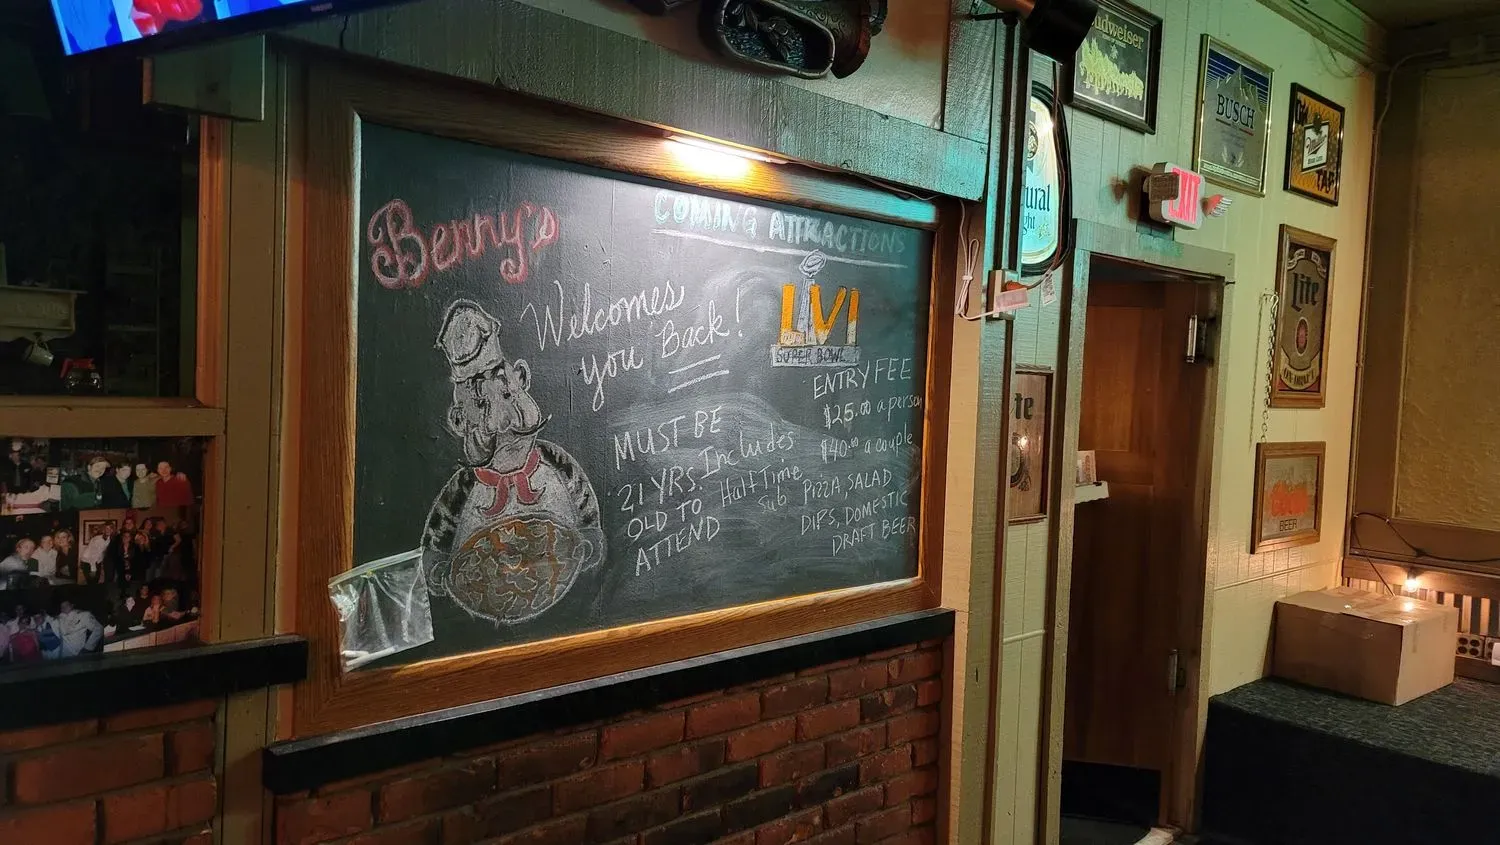 Berry's
Welcomes
you Back!
COMING ATTRACTIONS
LVI
SUPER BOWL
ENTRY FEE
$25.00 a person
$40.00 a couple
MUST BE
21 YRS.
OLD TO
ATTEND
Includes
HalfTime
Sub
PIZZA, SALAD
DIPS, DOMESTIC
DRAFT BEER
Budweiser
BUSCH
Miller
TAP
EXIT
tural
ght
Lite
te
Coors
BEER